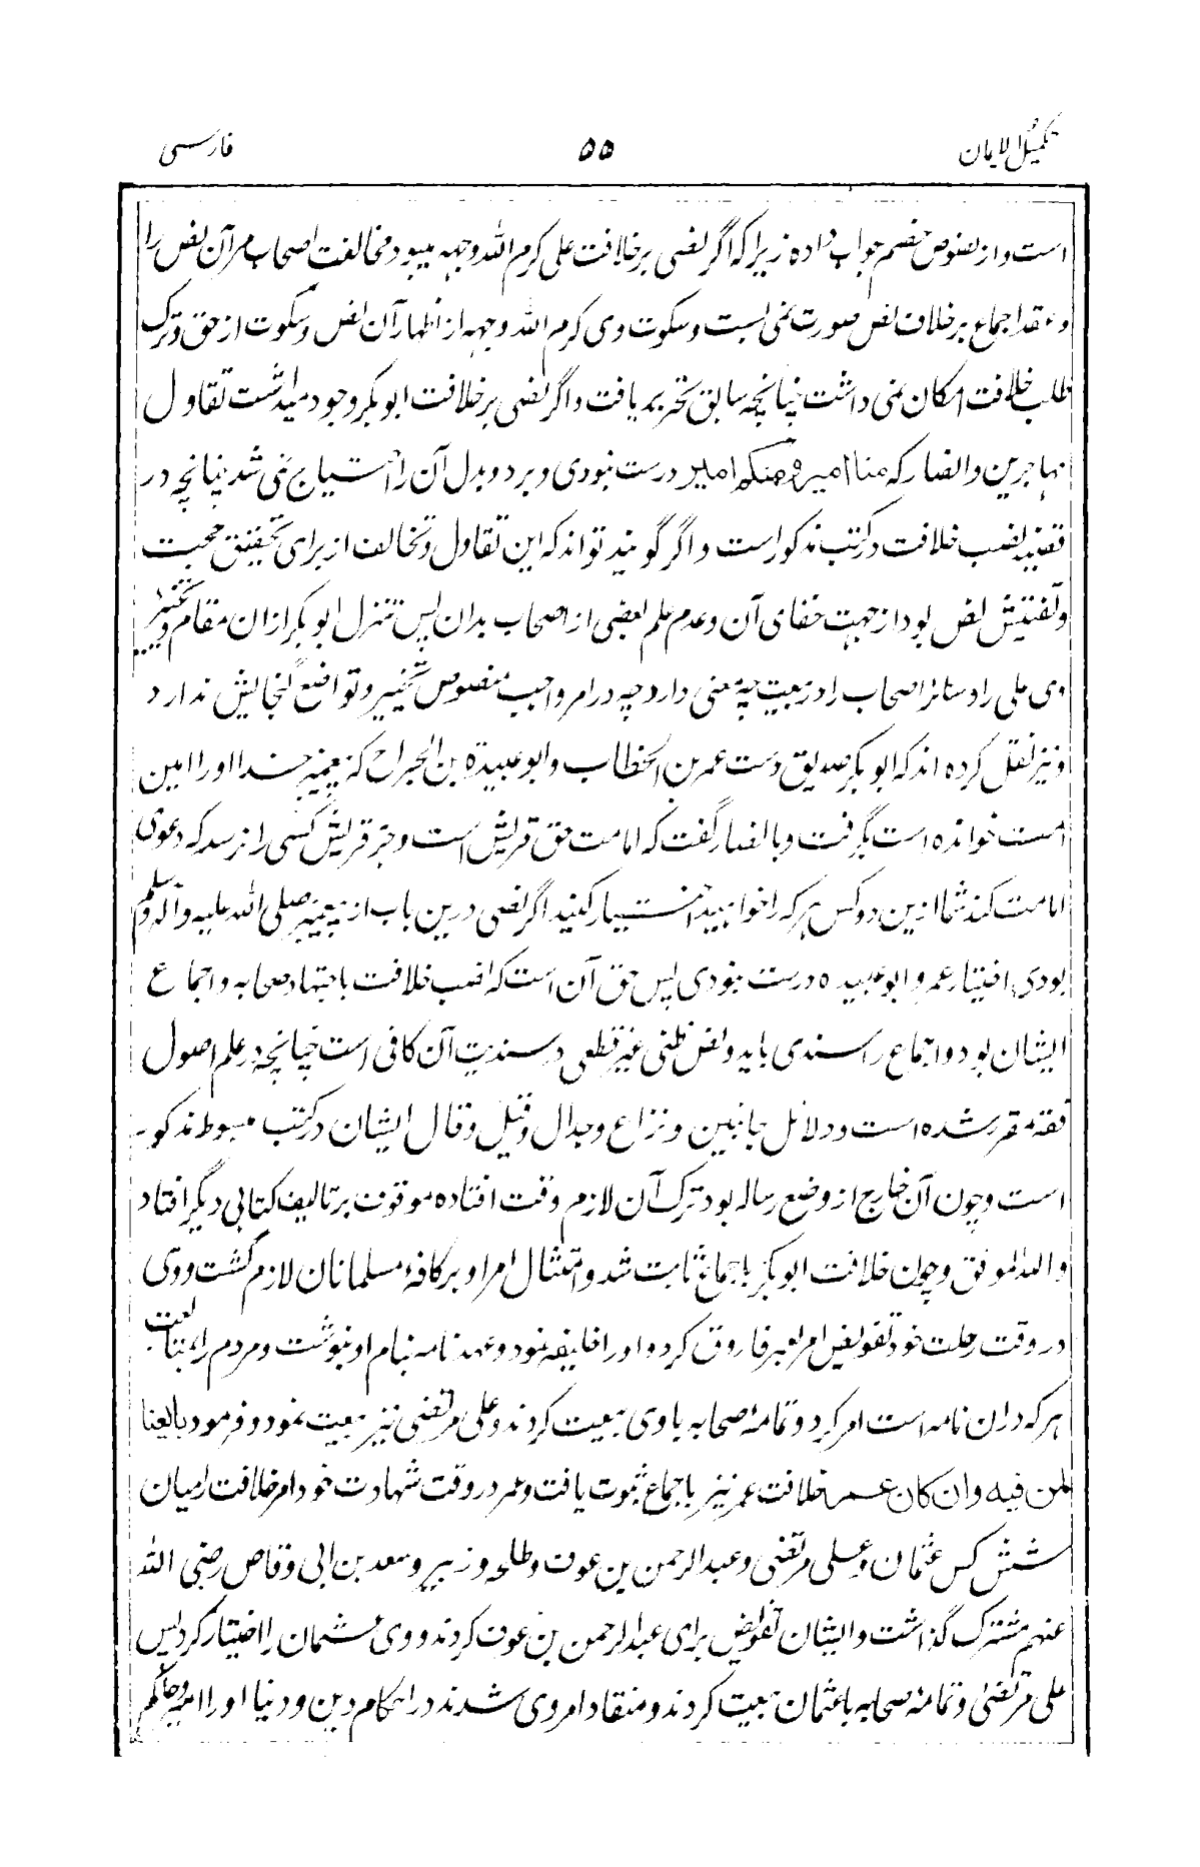 تکمیل الایمان
۵۵
فارسی
است و از نصوص خصم جواب داده زیرا که اگر نصی بر خلافت علی کرم الله وجهه میبود مخالفت اصحاب مر آن نص را
و عقد اجماع بر خلاف نص صورت نمی بست و سکوت وی کرم الله وجهه از اظهار آن نص و سکوت از حق و ترک
طلب خلافت امکان نمی داشت چنانچه سابق تحریر یافت و اگر نصی بر خلافت ابوبکر وجود میداشت تقاول
مهاجرین و انصار که منا امیر و منکم امیر درست نبودی و برد و بدل آن را احتیاج نمی شد چنانچه در
قضیه نصب خلافت در کتب مذکور است و اگر گویند تواند که این تقاول و تخالف از برای تحقیق حجیت
و تفتیش نص بود از جهت خفای آن و عدم علم بعضی از اصحاب بدان پس تنزل ابوبکر ازان مقام و تخییر
وی علی را و سائر اصحاب را در بیعت چه معنی دارد چه در امر واجب منصوص تخییر و تواضع گنجایش ندارد
و نیز نقل کرده اند که ابوبکر صدیق دست عمر بن الخطاب و ابو عبیدة بن الجراح که پیغمبر خدا او را امین
امت خوانده است بگرفت و با انصار گفت که امامت حق قریش است و جز قریش کسی را نرسد که دعوی
امامت کند شما ازین دو کس هر که را خواهید اختیار کنید اگر نصی درین باب از پیغمبر صلی الله علیه وآله وسلم
بودی اختیار عمر و ابو عبیده درست نبودی پس حق آن است که نصب خلافت باجتهاد صحابه و اجماع
ایشان بود و اجماع را سندی باید و نص ظنی غیر قطعی در سندیت آن کافی است چنانچه در علم اصول
فقه مقرر شده است و دلائل جانبین و نزاع و جدال و قیل و قال ایشان در کتب مبسوطه مذکور
است و چون آن خارج از وضع رساله بود ترک آن لازم وقت افتاده موقوف بر تالیف کتابی دیگر افتاد
والله الموفق و چون خلافت ابوبکر باجماع ثابت شد و امتثال امر او بر کافهٔ مسلمانان لازم گشت و وی
در وقت رحلت خود تفویض امر بعمر فاروق کرده و او را خلیفه نمود و عهد نامه بنام او نبوشت و مردم را بمتابعت
هر که دران نامه است امر کرد و تمامهٔ صحابه با وی بیعت کردند و علی مرتضی نیز بیعت نمود و فرمود بایعنا
لمن فیه و ان کان عمر خلافت عمر نیز باجماع ثبوت یافت و عمر در وقت شهادت خود امر خلافت را میان
شش کس عثمان و علی مرتضی و عبد الرحمن بن عوف و طلحه و زبیر و سعد بن ابی وقاص رضی الله
عنهم مشترک گذاشت و ایشان تفویض برای عبد الرحمن بن عوف کردند و وی عثمان را اختیار کرد پس
علی مرتضیٰ و تمامهٔ صحابه با عثمان بیعت کردند و منقاد امر وی شدند در احکام دین و دنیا او را امیر و حاکم